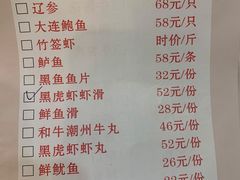 辽参 68元/只
大连鲍鱼 58元/只
竹签虾 时价/斤
鲈鱼 58元/条
黑鱼鱼片 32元/份
黑虎虾虾滑 52元/份
鲜鱼滑 28元/份
和牛潮州牛丸 46元/份
黑虎虾虾丸 52元/份
鲜鱿鱼 26元/份
元/份